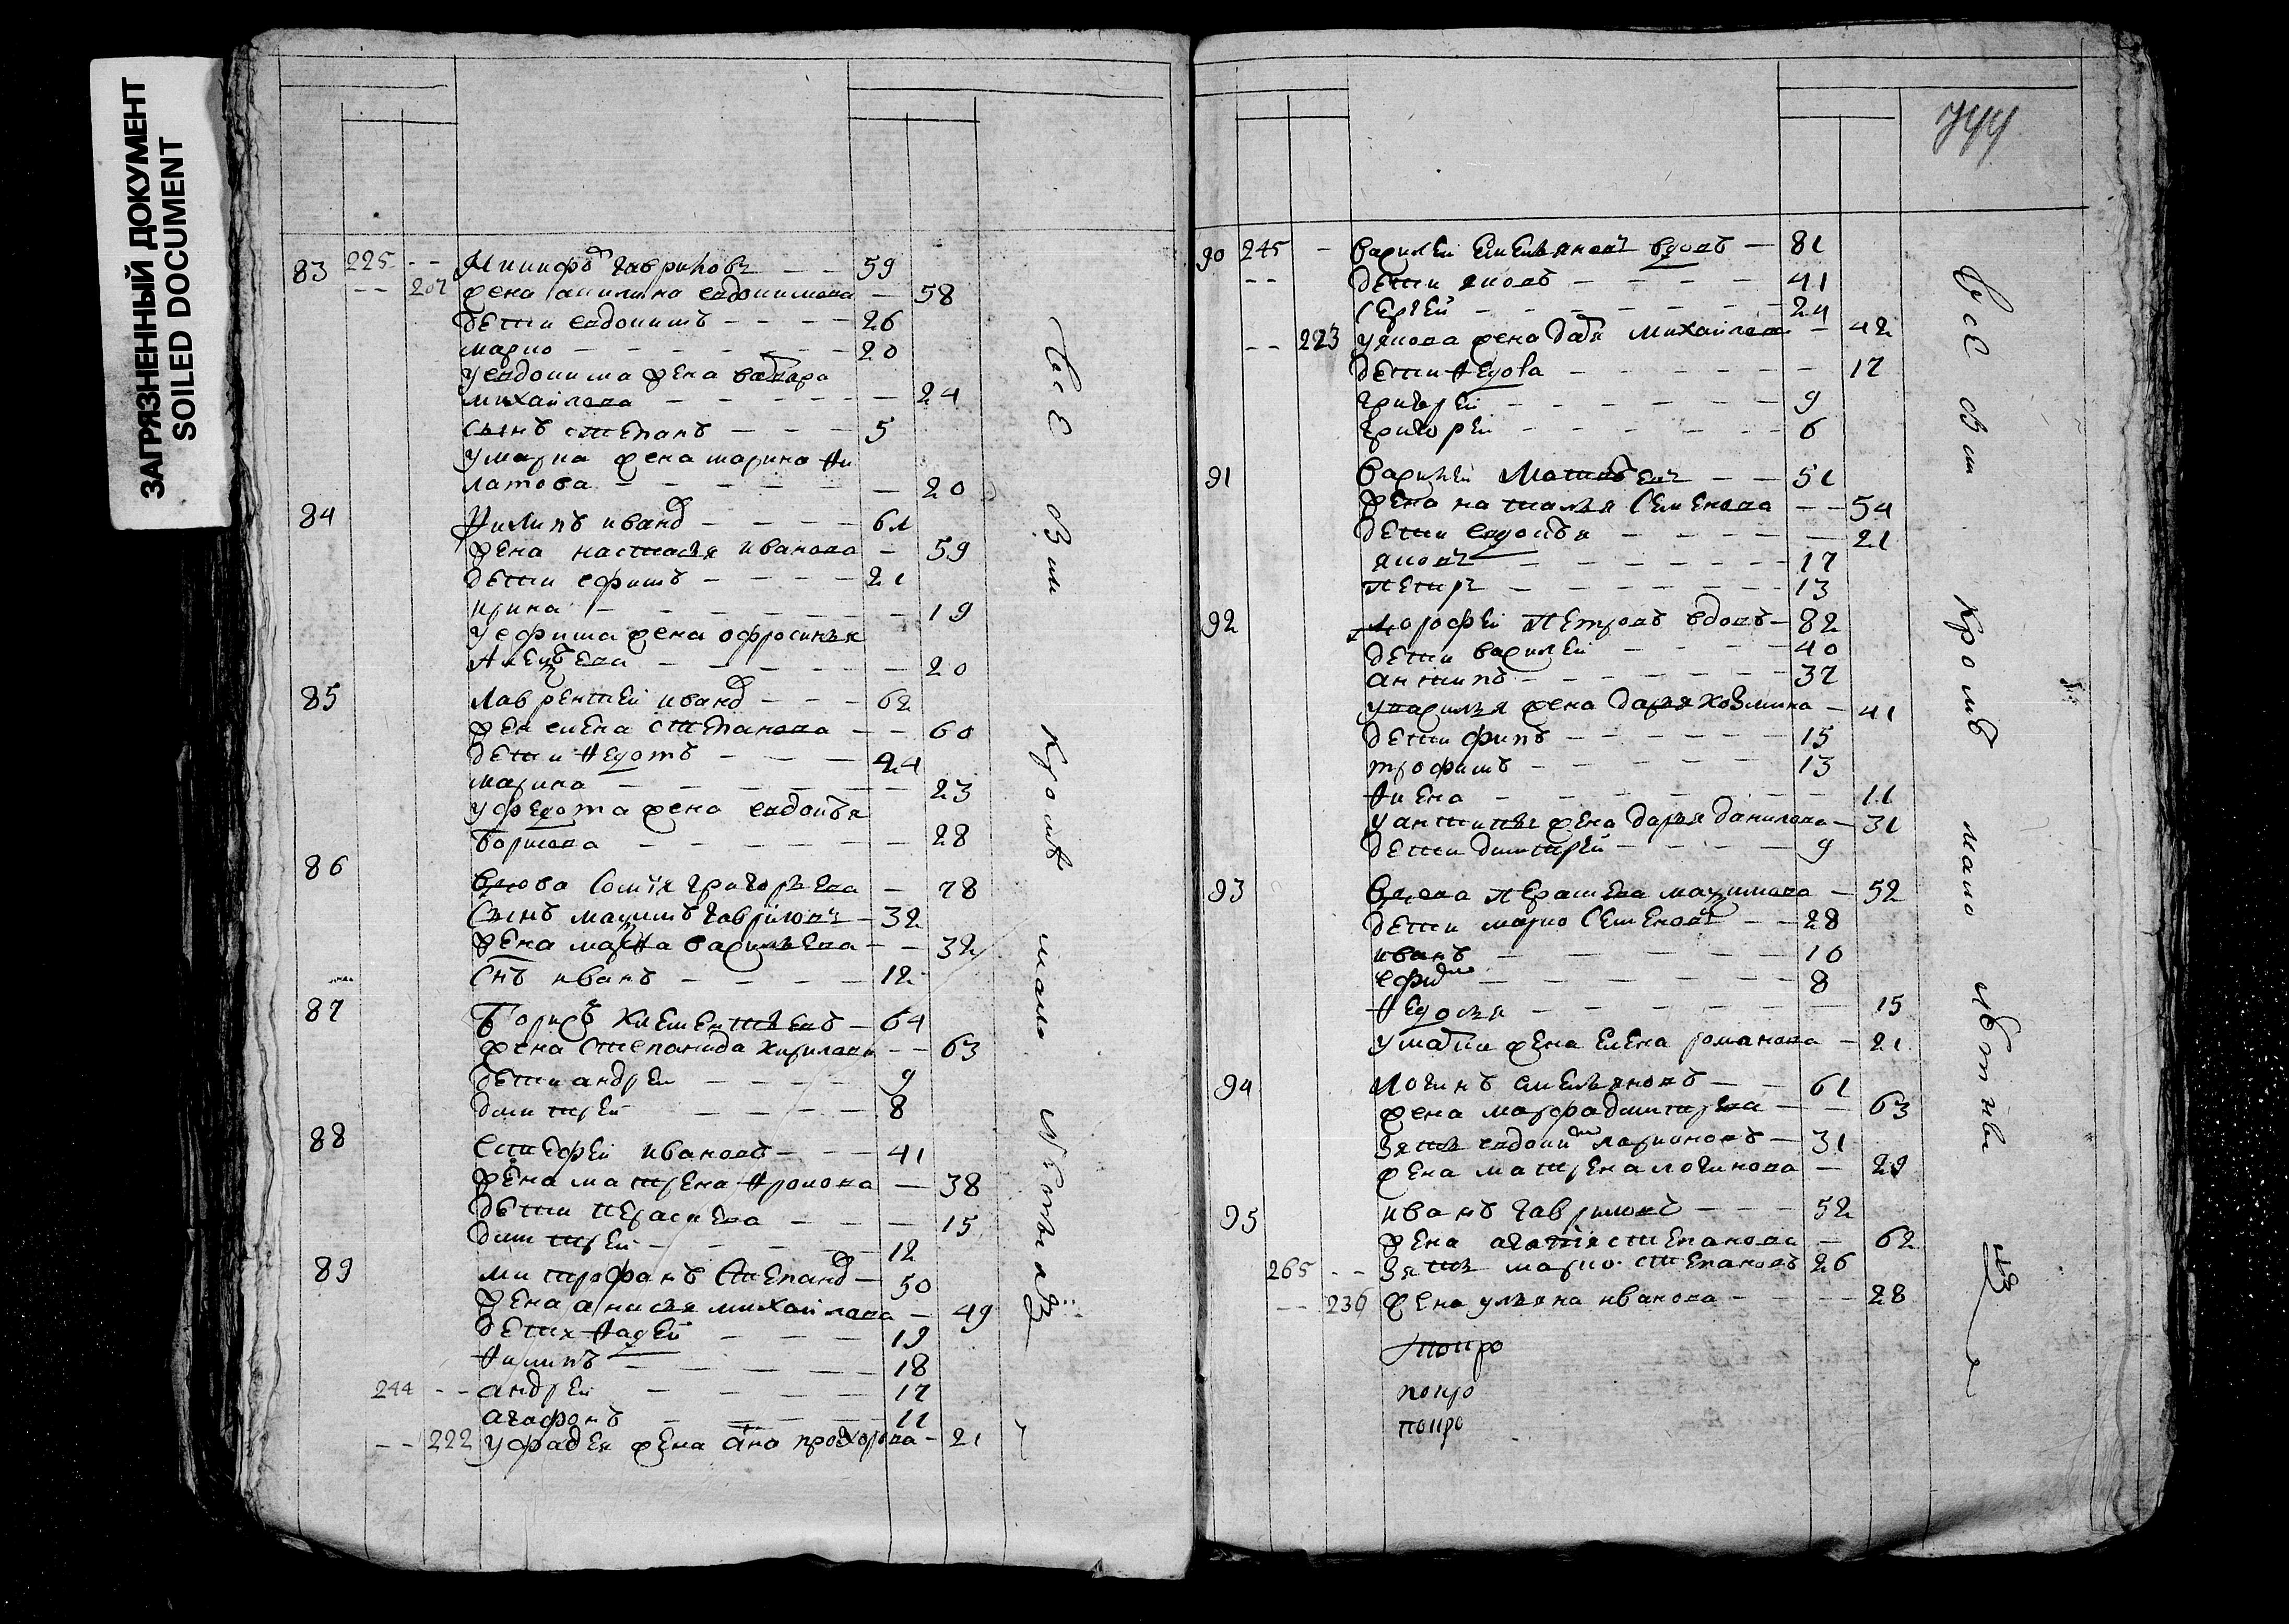 ЗАГРЯЗНЕННЫЙ ДОКУМЕНТ
SOILED DOCUMENT
83 225 - - Гавриловъ - - 59
- - 207 жена евдокимова - 58
дети евдокимъ - - - - 26
марко - - - - - - - 20
у евдокима жена варвара
михайлова - - - - - - 24
сынъ степанъ - - - 5
у марка жена марина фи
латова - - - - - - 20
84 Филипъ иванов - - - - 61
жена настасья иванова - 59
дети ефимъ - - - - 21
ирина - - - - - - - 19
у ефима жена офросинья
- - - - - - 20
85 лаврентей иванов - - - 62
жен елена степанова - - 60
дети федотъ - - - 24
марина - - - - - - 23
у федота жена евдокѣя
борисова - - - - - - 28
86 вдова софія григорьева - 78
сынъ максимъ гавриловъ - 32
жена марфа васильева - - 32
снъ иванъ - - - - 12
87 Борисъ клементьевъ - 64
жена степанида кирилова - - 63
дети андрей - - - - 9
дмитрей - - - - 8
88 ивановъ - - - 41
жена матрена фролова - 38
дети - - - 15
дмитрей - - - - 12
89 митрофанъ степанов - 50
жена анисья михайлова - 49
дети фадей - - - 19
филипъ - - - - - 18
244 - - андрей - - - - 17
агафонъ - - - - - 11
- - 222 у фадея жена ана прохорова - 21
всѣ они кромѣ мало лѣтных
744
90 245 - василей емельяновъ вдовъ - 81
- - дети яковъ - - - - 41
сергей - - - - - - - 24
- - 223 у якова жена дарья михайлова - 42
дети федора - - - - - - 17
григорей - - - - - - 9
григорей - - - - - - 6
91 василей - - 51
жена наталья семенова - - 54
дети евдокѣя - - - - - 21
яковъ - - - - - - 17
петръ - - - - - - 13
92 дорофей петровъ вдовъ - 82
дети василей - - - - 40
антипъ - - - - - - 37
у василья жена дарья козмина - 41
дети - - - - - - 15
трофимъ - - - - - 13
- - - - - - - 11
у антипы жена дарья данилова - 31
дети дмитрей - - - - 9
93 вдова максимова - 52
дети марко семеновъ - - 28
иванъ - - - - - 10
ефим - - - - - - 8
федосья - - - - - - 15
у марка жена елена романова - 21
94 логинъ емельяновъ - - 61
жена марфа дмитрева - - 63
зять евдоким ларионовъ - 31
жена матрена логинова - 29
95 иванъ гавриловъ - - - 52
жена агафія степанова - 62
265 - - зять марко степановъ 26
- - 236 жена ульяна иванова - - - 28
всѣ они кромѣ мало лѣтных